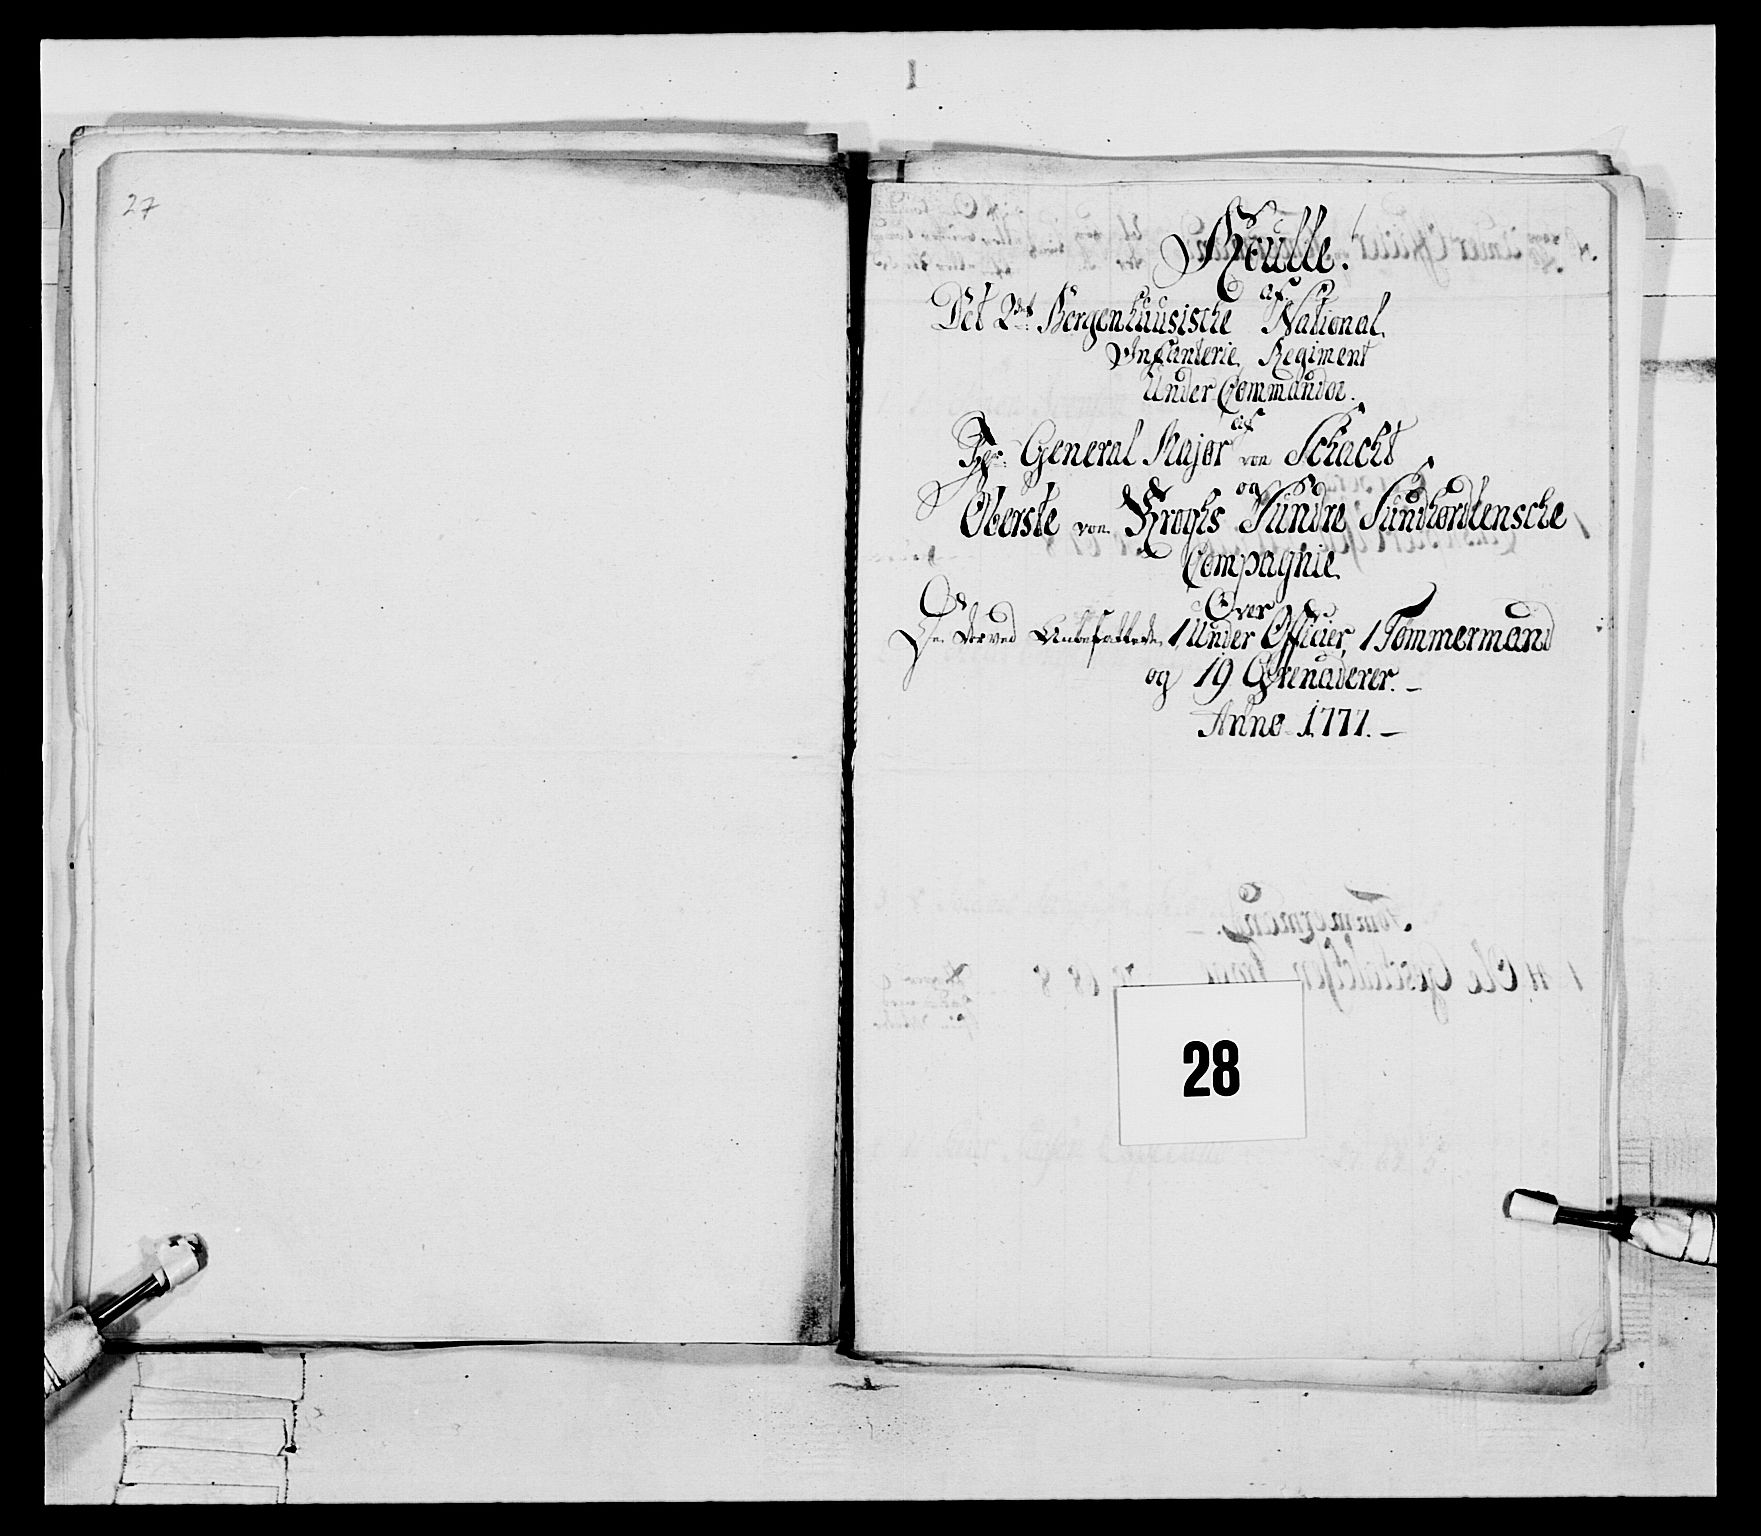 27
Roulle.
af
Det 2det Bergenhuusische National
Infanterie Regiment
Under Commando
af
Hr: General Major von Schacht
og
Oberste von Kroghs Søndre Sundhordlensche
Compagnie
Over
De derved Anbefattede 1 Under Officier, 1 Tømmermand
og 19 Grenaderer. —
Anno 1777. —
28